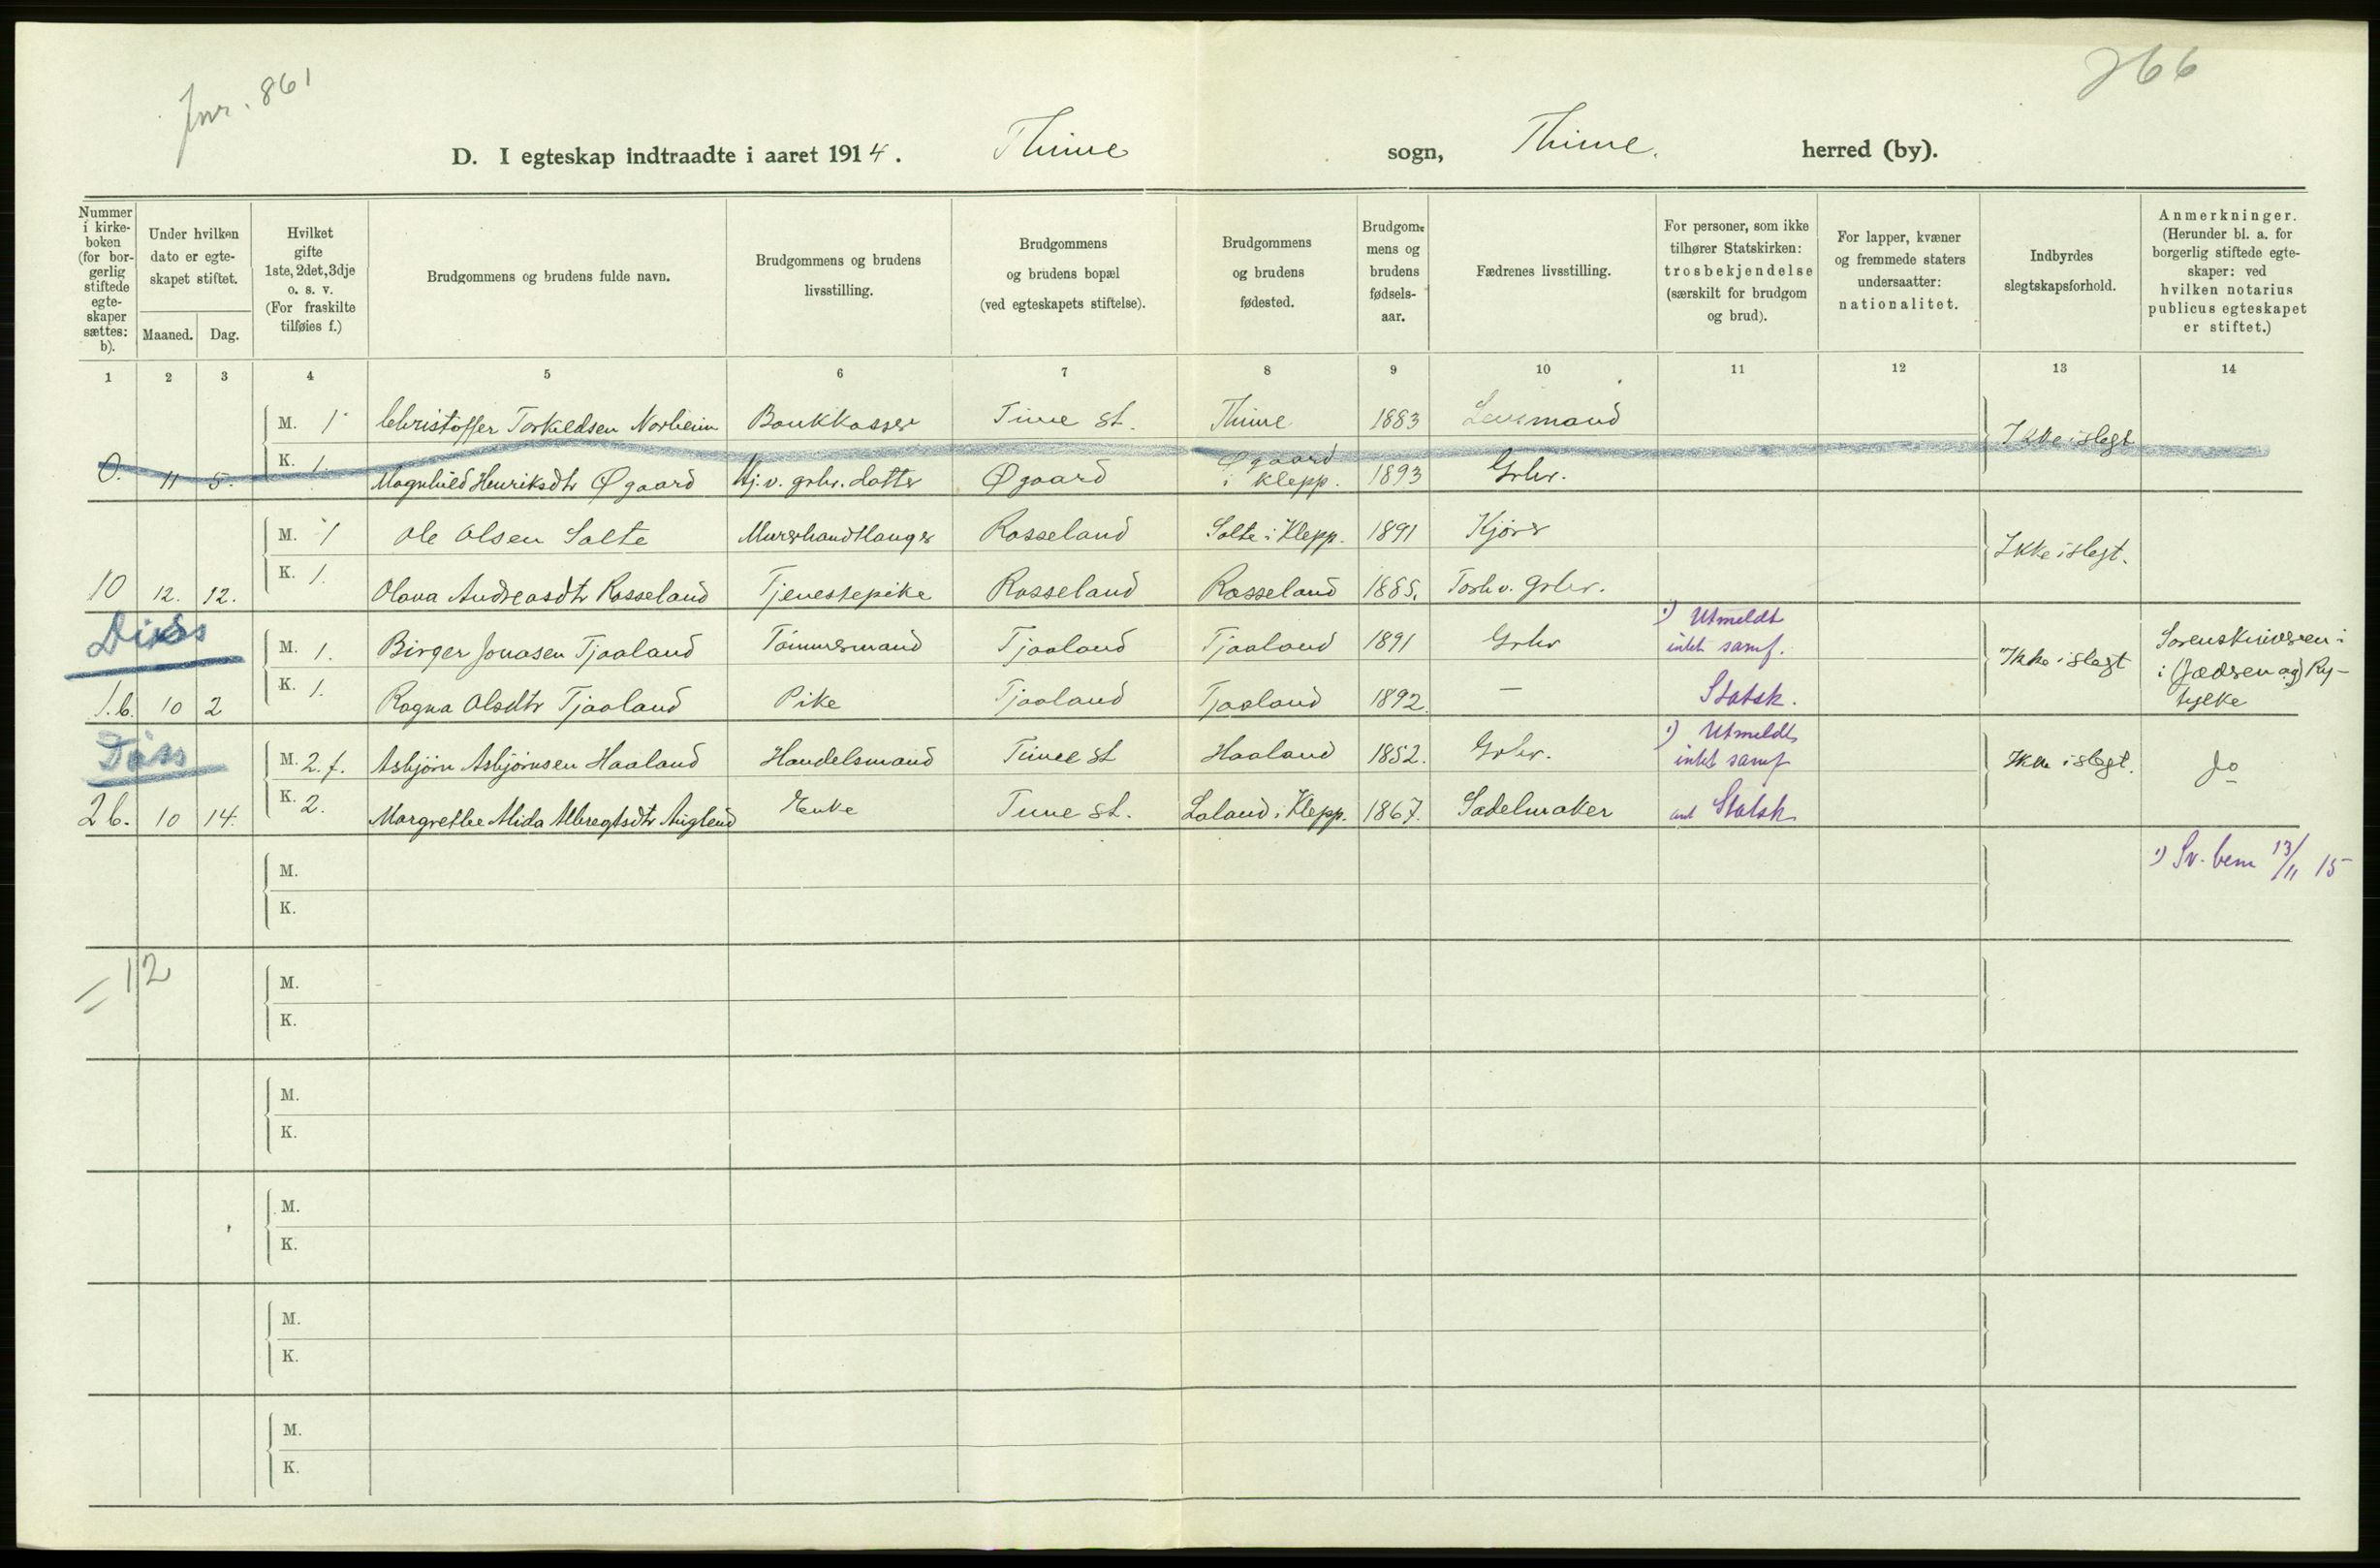 Jnr. 861
266
D. I egteskap indtraadte i aaret 1914. Thime sogn, Thime. herred (by).
Nummer i kirkeboken (for borgerlig stiftede egteskaper sættes: b).
Under hvilken dato er egteskapet stiftet.
Maaned. Dag.
Hvilket gifte 1ste, 2det, 3dje o. s. v. (For fraskilte tilføies f.)
Brudgommens og brudens fulde navn.
Brudgommens og brudens livsstilling.
Brudgommens og brudens bopæl (ved egteskapets stiftelse).
Brudgommens og brudens fødested.
Brudgommens og brudens fødselsaar.
Fædrenes livsstilling.
For personer, som ikke tilhører Statskirken: trosbekjendelse (særskilt for brudgom og brud).
For lapper, kvæner og fremmede staters undersaatter: nationalitet.
Indbyrdes slegtskapsforhold.
Anmerkninger. (Herunder bl. a. for borgerlig stiftede egteskaper: ved hvilken notarius publicus egteskapet er stiftet.)
1 2 3 4 5 6 7 8 9 10 11 12 13 14
M. 1 Christoffer Torkildsen Norheim Bankkasser Time st. Thime 1883 Lensmand
Ikke i slegt
11 5. K. 1. Magnhild Henriksdtr Øgaard Hj. v. grbr. datter Øgaard Øgaard i Klepp. 1893 Grbr.
M. 1 Ole Olsen Salte Murerhandlanger Rosseland Salte i Klepp. 1891 Kjører
Ikke i slegt.
10 12. 12. K. 1. Olava Andreasdtr Rosseland Tjenestepike Rosseland Rosseland 1885. Forh v. Grbr.
Diss
M. 1. Birger Jonasen Tjaaland Tømmermand Tjaaland Tjaaland 1891 Grbr 1) Utmeldt intet samf.
Ikke i slegt
Sorenskriveren i (Jædren og) Ryfylke
1.b. 10 2 K. 1. Ragna Olsdtr Tjaaland Pike Tjaaland Tjaaland 1892. — Statsk.
Diss
M. 2. f. Asbjørn Asbjørnsen Haaland Handelsmand Time st Haaland 1852. Grbr. 1) Utmeldt intet samf
Ikke i slegt.
Do
2 b. 10 14. K. 2. Margrethe Alida Albregtsdtr Auglend Enke Time st. Laland i Klepp. 1867. Sadelmaker Statsk
1) Sv. bem 13/11 15
M.
K.
= 12
M.
K.
M.
K.
M.
K.
M.
K.
M.
K.